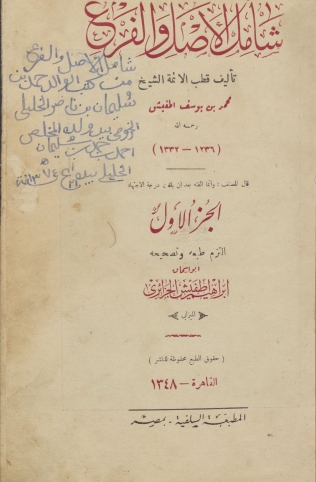 شامل الأصل والفرع
تأليف قطب الأئمة الشيخ
محمد بن يوسف اطفيش
رحمه الله
(١٢٣٦ - ١٣٣٢)
قال المصنف : وانا الفته بعد ان بلغت درجة الاجتهاد
الجزء الأول
التزم طبعه وتصحيحه
ابو اسحاق
ابراهيم اطفيش الجزائري
الميزابي
( حقوق الطبع محفوظة للناشر )
القاهرة - ١٣٤٨
المطبعة السلفية - بمصر
شامل الأصل والفرع
من كتب الوالد حمد بن
سليمان بن ناصر الخليلي
ولده المخلص
احمد بن حمد بن سليمان
الخليلي بيده